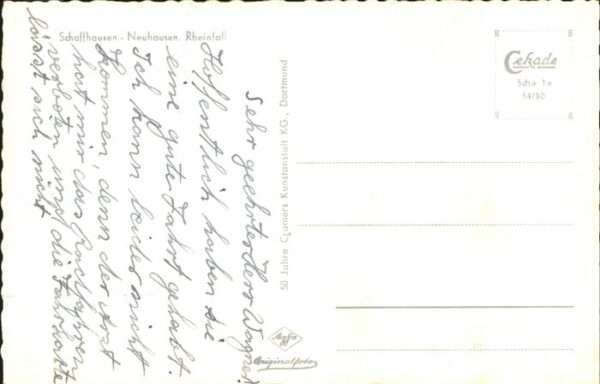 Schaffhausen - Neuhausen. Rheinfall
Sehr geehrter Herr Wagner!
Hoffentlich haben Sie
eine gute Fahrt gehabt.
Ich kann leider nicht
kommen, denn der Arzt
hat mir das Radfahren
verboten und die Fahrkarte
lässt sich nicht
50 Jahre Cramers Kunstanstalt KG., Dortmund
Cekade
Scha 1a
Agfa
Originalfoto